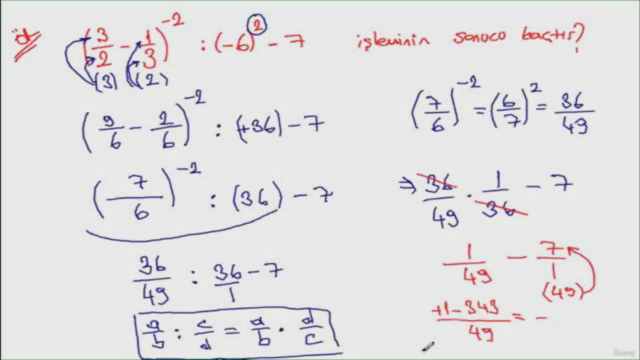 Ö (3/2 - 1/3)^-2 : (-6)^2 - 7 işleminin sonucu kaçtır?
(3) (2)
(9/6 - 2/6)^-2 : (+36) - 7
(7/6)^-2 : (36) - 7
36/49 : 36/1 - 7
a/b : c/d = a/b · d/c
(7/6)^-2 = (6/7)^2 = 36/49
⇒ 36/49 · 1/36 - 7
1/49 - 7/1
(49)
+1-343/49 = -